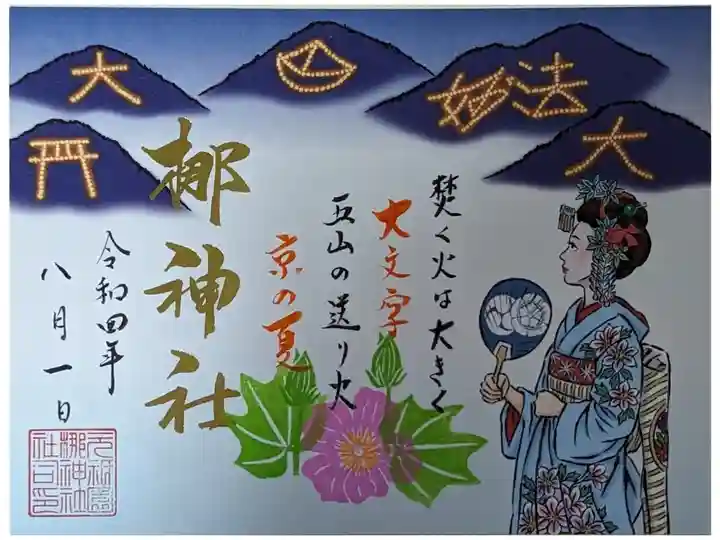 大
妙法
大
焚く火は大きく
大文字
五山の送り火
京の夏
梛神社
令和四年
八月一日
元祇園
梛神社
社印